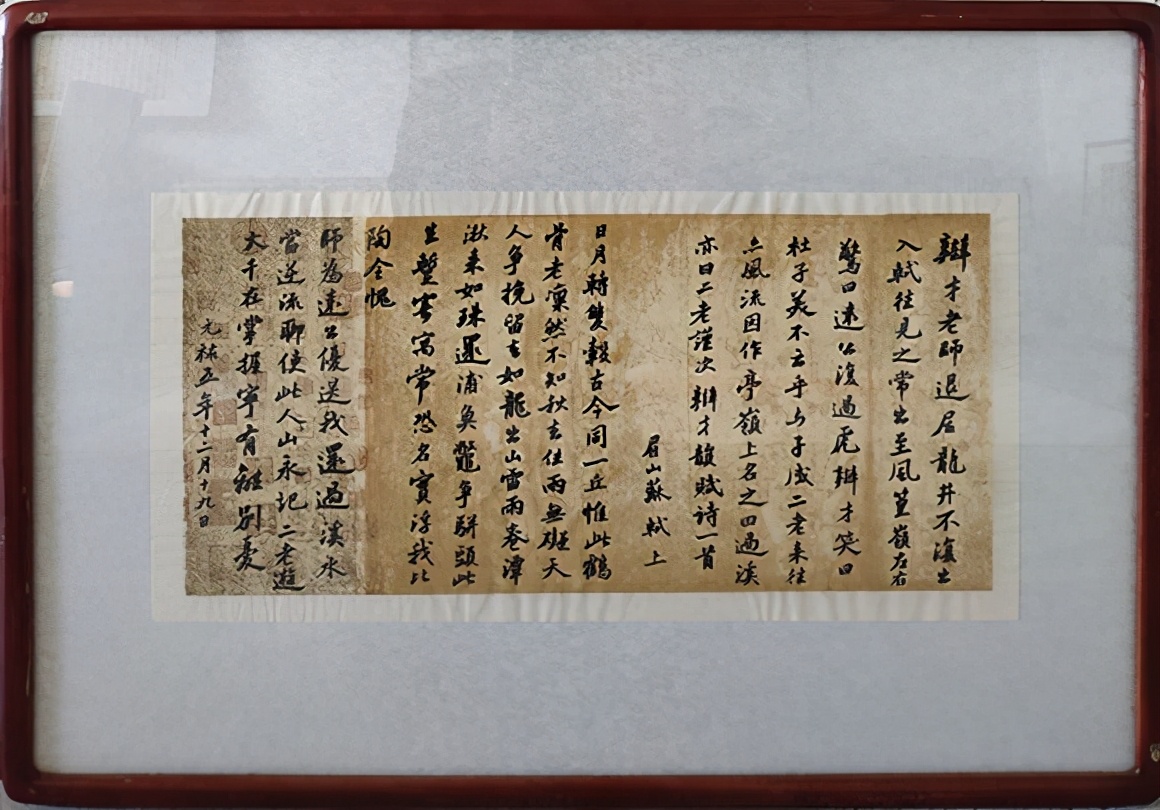 辯才老師退居龍井不復出
入軾往見之常出至風篁嶺左右
驚曰遠公復過虎辯才笑曰
杜子美不云乎与子成二老来往
亦風流因作亭嶺上名之曰過溪
亦曰二老謹次辯才韻賦詩一首
眉山蘇軾上
日月轉雙轂古今同一丘惟此鶴
骨老凜然不知秋去住兩無礙天
人爭挽留去如龍出山雷雨卷潭
湫来如珠還浦魚鼈爭駢頭此
生蹔寄寓常恐名實浮我比
陶令愧
師為遠公優送我還過溪水
當逆流聊使此人山永記二老遊
大千在掌握寧有離別憂
元祐五年十二月十九日